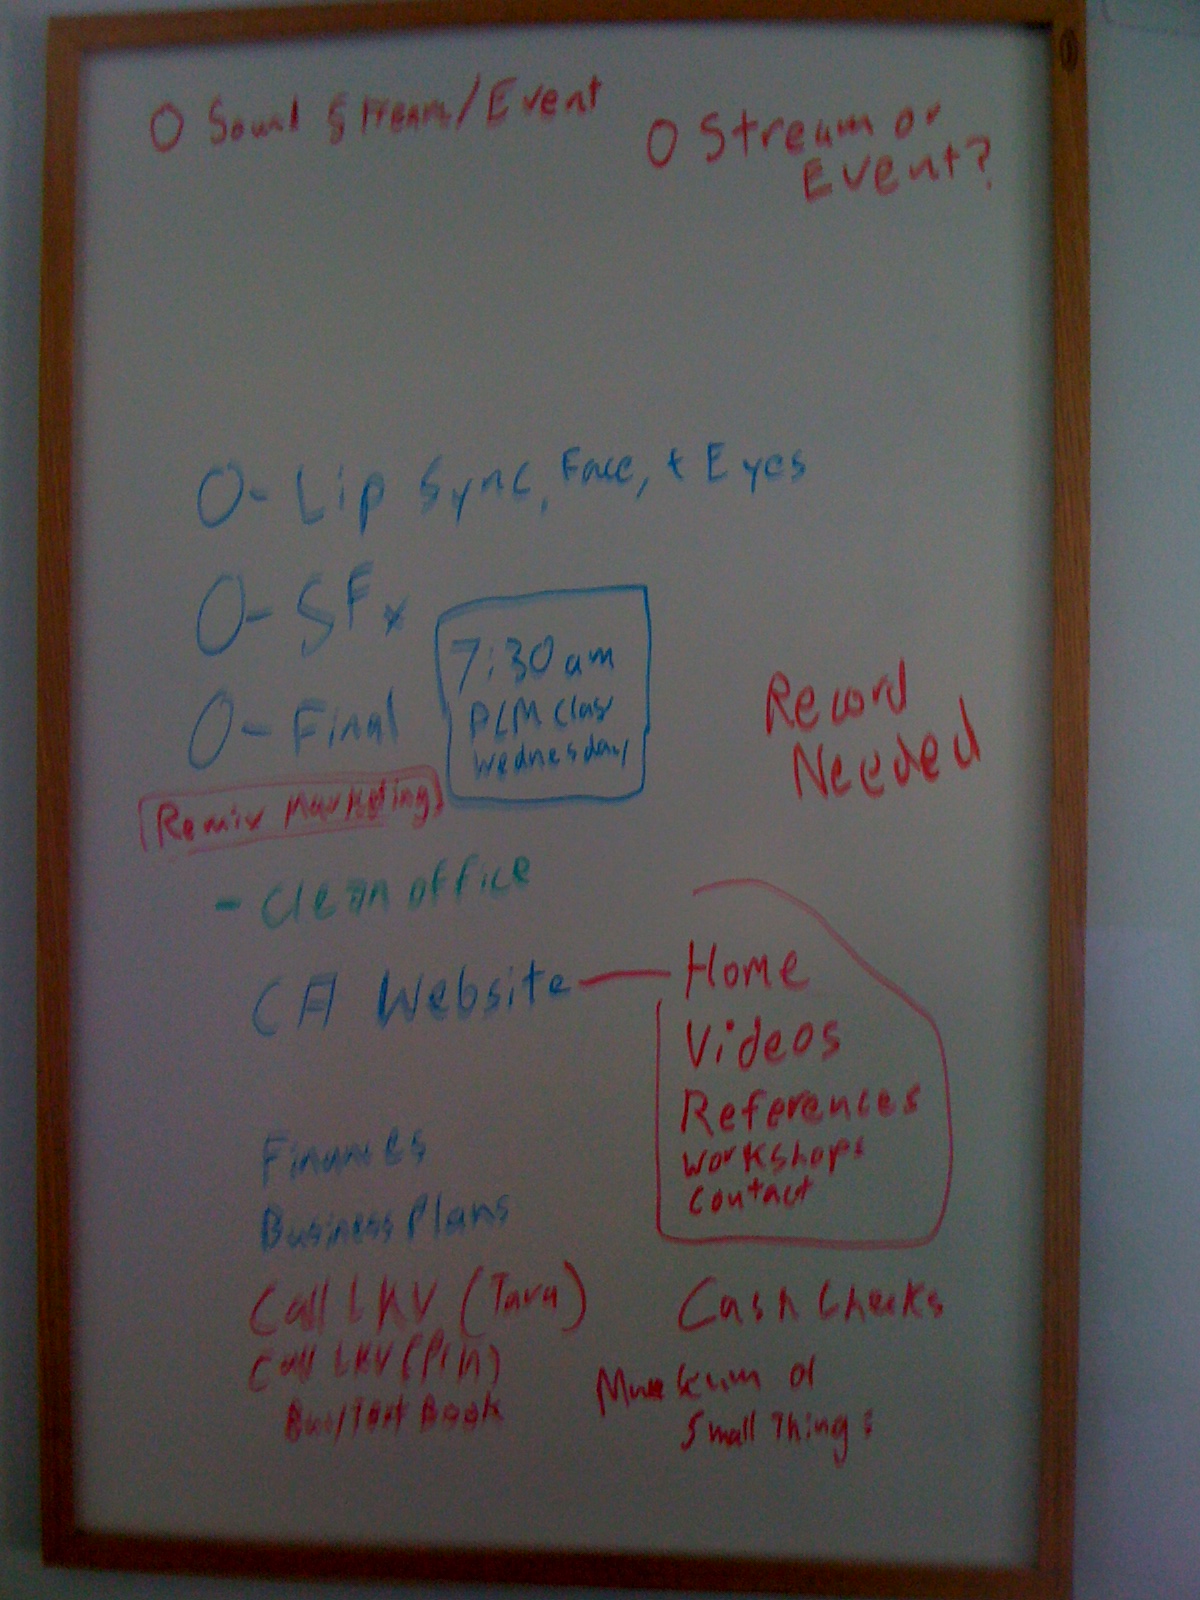 O Sound Stream/Event
O Stream or
Event?
O- Lip Sync, Face, + Eyes
O- SFx
O- Final
7:30 am
PLM Class
Wednesday
Record
Needed
Remix Marketing
- Clean office
CA Website
Home
Videos
References
Workshops
Contact
Finances
Business Plans
Call LKV (Tara)
Cash Checks
Call LKV
Book
of
Small Things